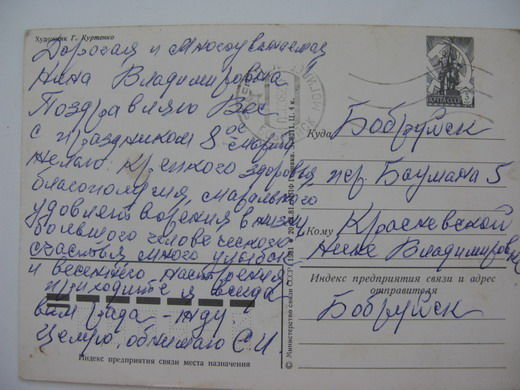 Художник Г. Куртенко
Дорогая и Многоуважаемая
Нина Владимировна
Поздравляю Вас
с праздником 8ое Марта
Желаю крепкого здоровья
благополучия, морального
удовлетворения в жизни
большого человеческого
счастья, много улыбок
и весеннего настроения
приходите я всегда
вам рада - жду
Целую, обнимаю С.И.
Индекс предприятия связи места назначения
© Министерство связи СССР, 1981
ПОЧТА СССР
Куда
Бобруйск
пер. Баумана 5
Кому
Красневской
Нине Владимировне
Индекс предприятия связи и адрес
отправителя
Бобруйск